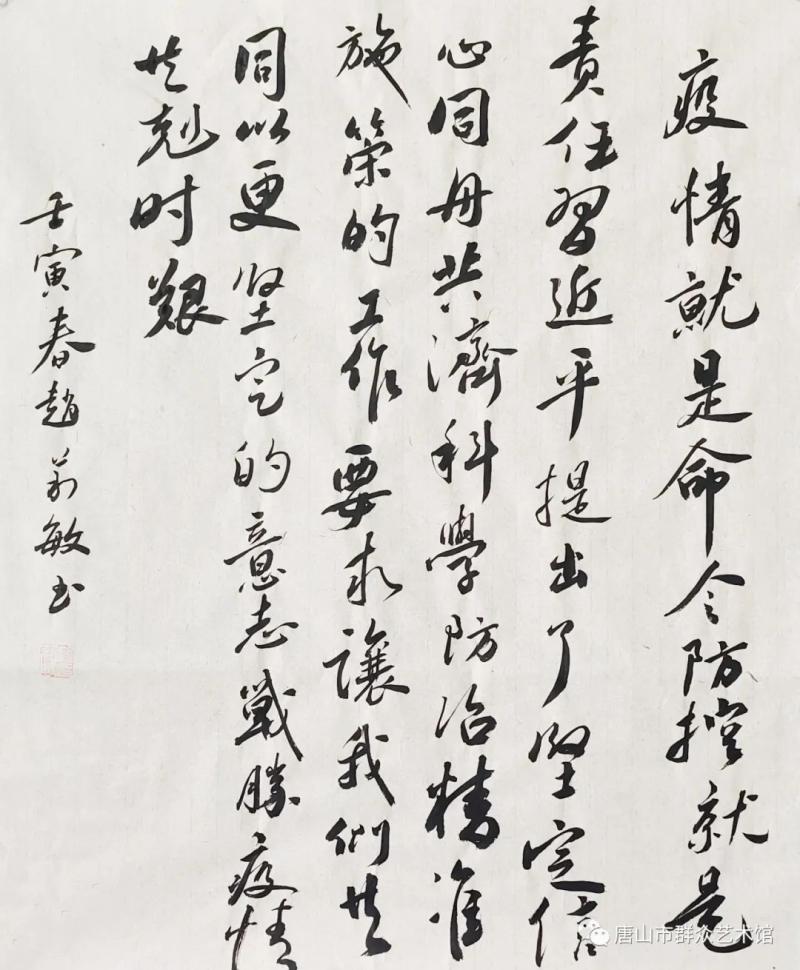 疫情就是命令防控就是
责任習近平提出了堅定信
心同舟共濟科學防治精准
施策的工作要求讓我们共
同以更堅定的意志戰勝疫情
共克时艱
壬寅春趙莉敏书
唐山市群众艺术馆